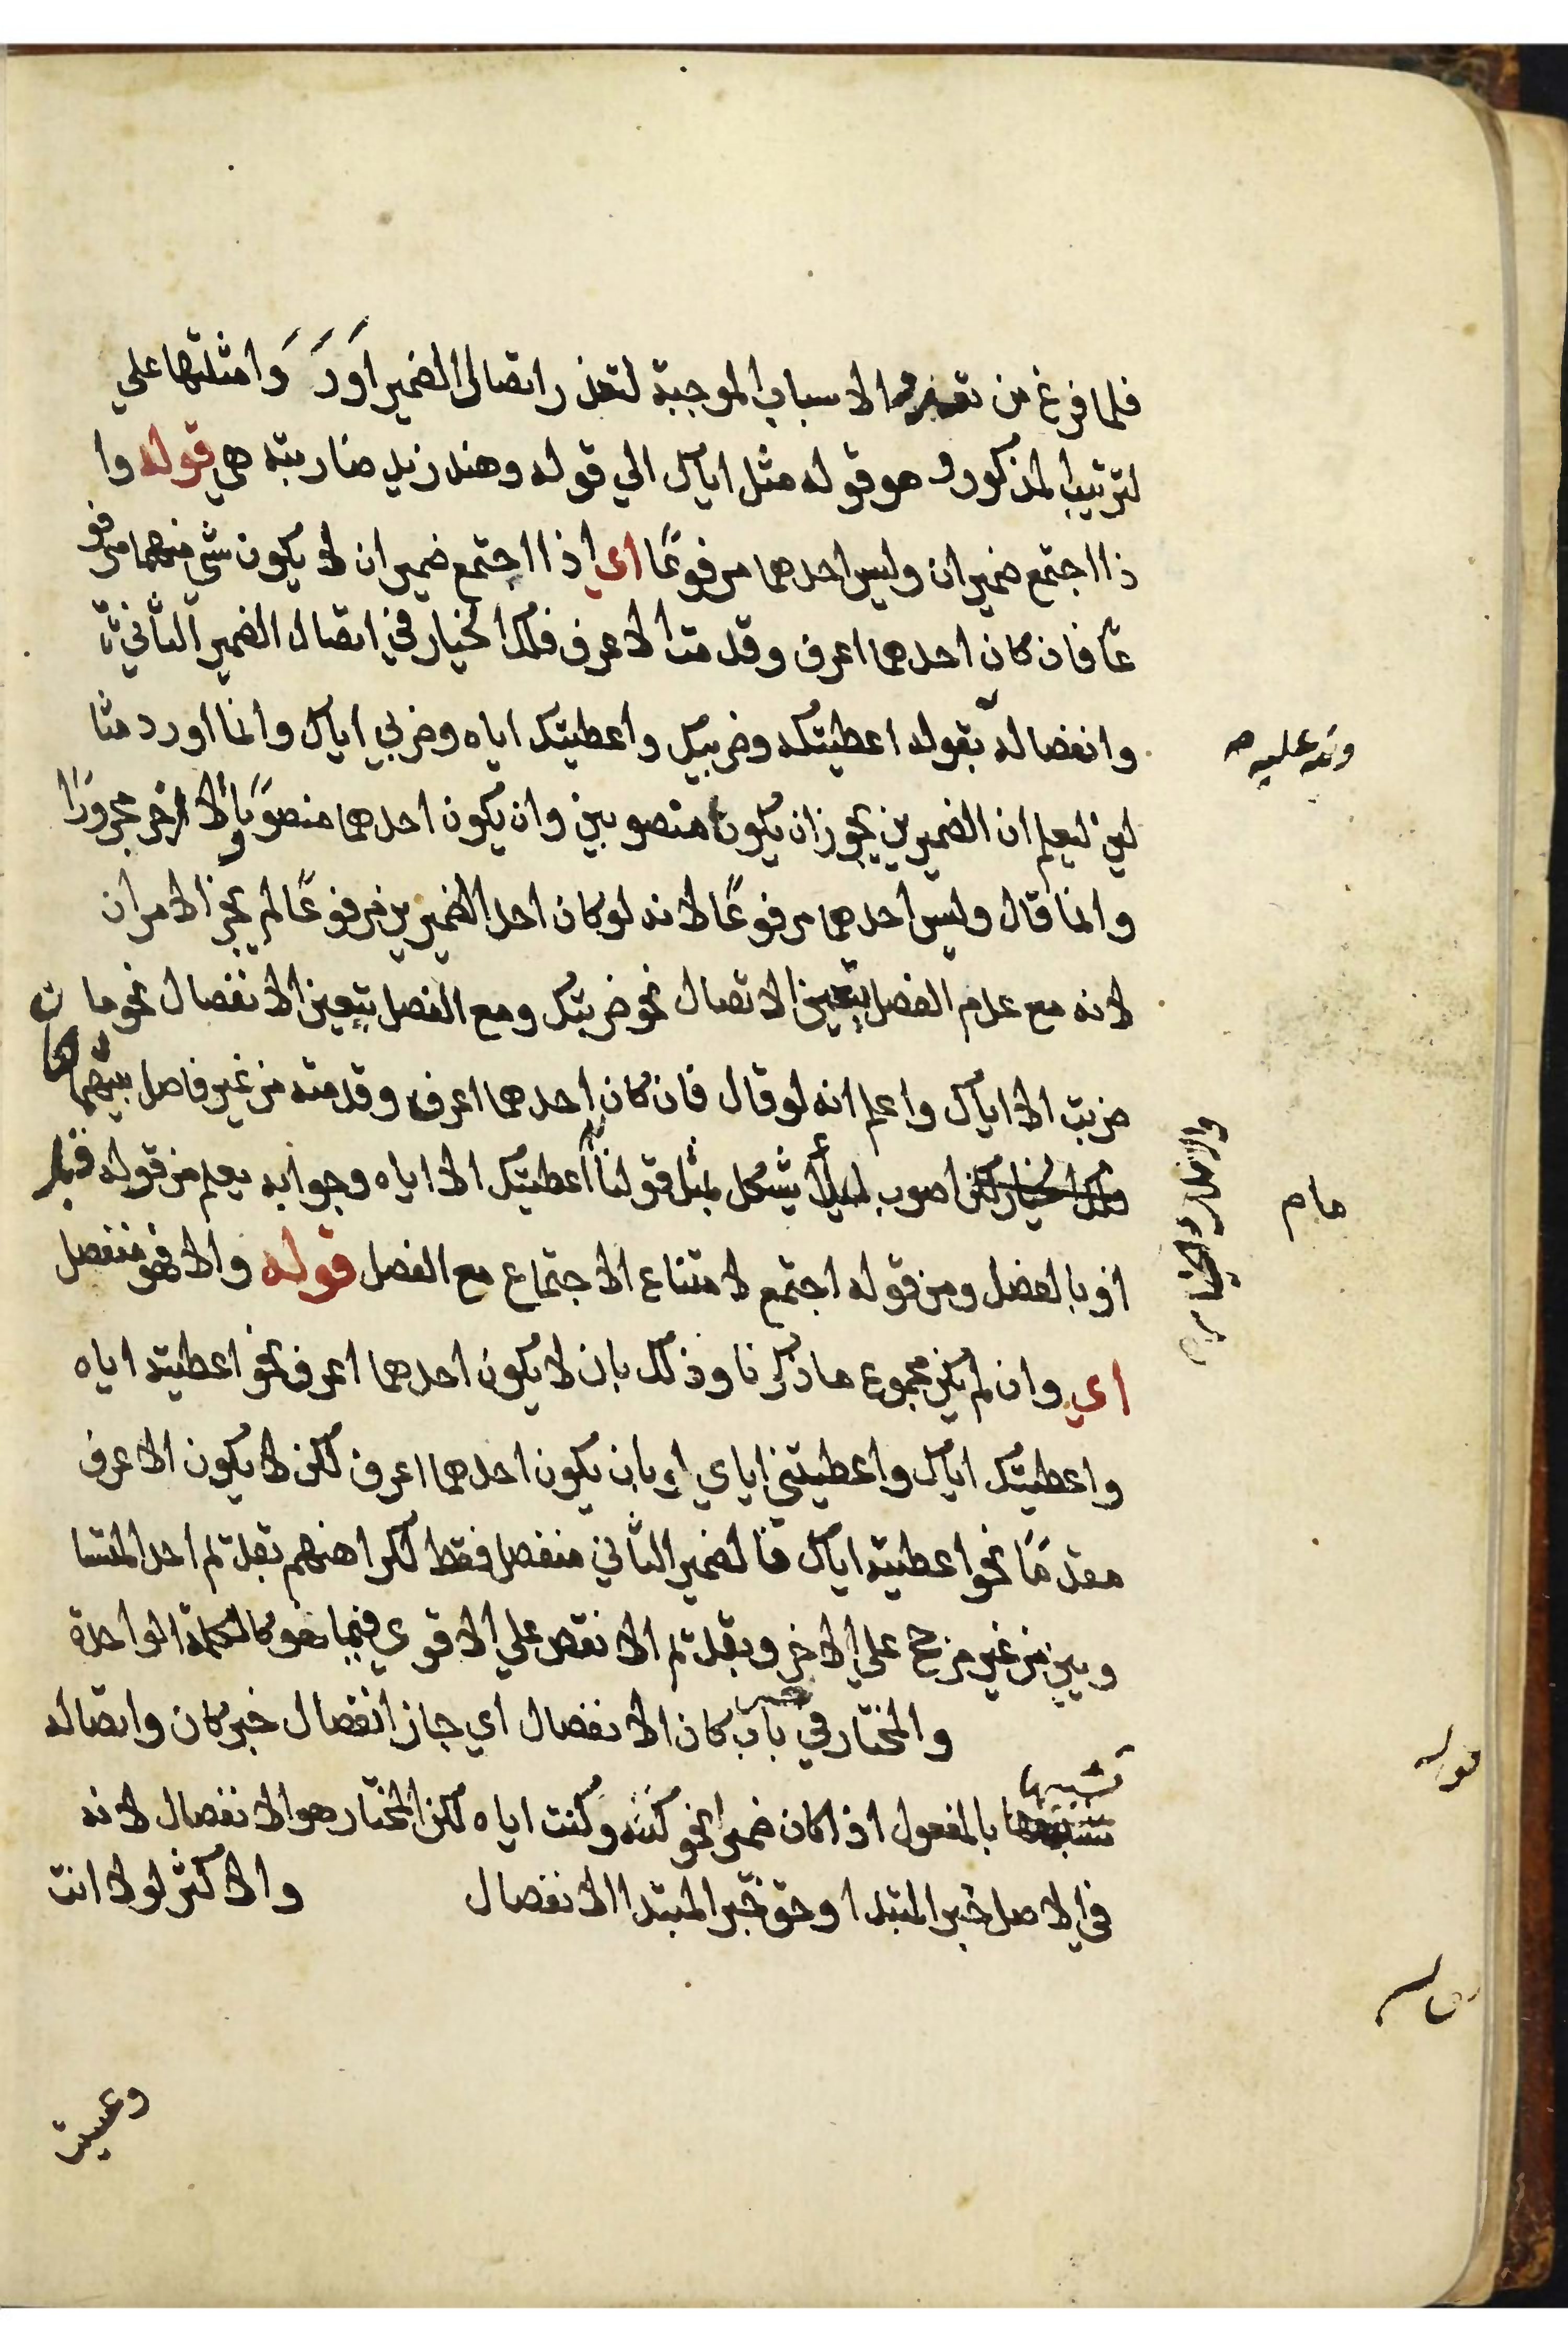 فلما فرغ من الاسباب الموجبة لتعذر اتصال الضمير اورد وامثلتها علي ا
لترتيب المذكور وهو قوله مثل اياك الي قوله وهند زيد ضاربته هي قوله وا
ذا اجتمع ضميران وليس احدهما مرفوعًا اي اذا اجتمع ضميران لا يكون شي منهما مرفو
عًا فان كان احدهما اعرف وقدمته الاعرف فلك الخيار في اتصال الضمير الثاني
وانفصاله بقوله اعطيتكه وضربيك واعطيتك اياه وضربي اياك وانما اورد مثا
لين ليعلم ان الضميرين يجوز ان يكونا منصوبين وان يكون احدهما منصوبًا والاخر مجرورًا
وانما قال وليس احدهما مرفوعًا لانه لو كان احد الضميرين مرفوعًا لم يجز الامران
لانه مع عدم الفصل يتعين الاتصال نحو ضربتك ومع الفصل يتعين الانفصال نحو ما
ضربت الا اياك واعلم انه لو قال فان كان احدهما اعرف وقدمته من غير فاصل بينهما
فلك الخيار لكن اصوب لئلا يشكل بمثل قولنا اعطيتك الا اياه وجوابه يعلم من قوله قبل
او بالفصل ومن قوله اجتمع لامتناع الاجتماع مع الفصل قوله والا فهو منفصل
اي وان لم يكن مجموع ما ذكرنا وذلك بان لا يكون احدهما اعرف نحو اعطيته اياه
واعطيتك اياك واعطيتني اياي او بان يكون احدهما اعرف لكن لا يكون الاعرف
مقدمًا نحو اعطيته اياك فالضمير الثاني منفصل فقط لكراهتهم تقدم احد المتسا
ويين من غير مرجح علي الاخر وتقدم الانقص علي الاقوي فيما هو كالكلمة الواحدة
والمختار في باب كان الانفصال اي جاز انفصال خبر كان واتصاله
تشبيها
بالمفعول اذا كان ضميرا نحو كنته وكنت اياه لكن المختار هو الانفصال لانه
في الاصل خبر المبتدا وحق خبر المبتدا الانفصال والاكثر لولا انت
وعسيت